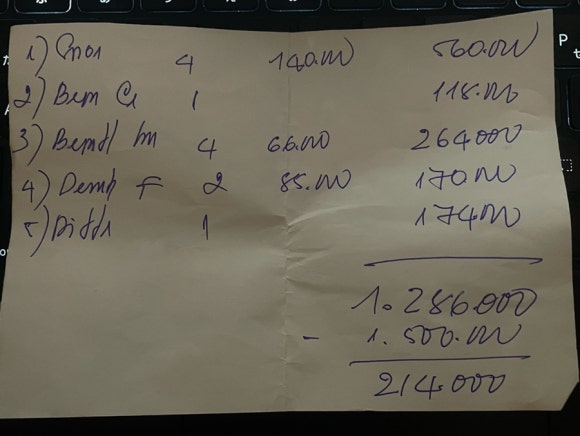 1) 4 140.000 560.000
2) Bem G 1 118.000
3) Bemdl lm 4 66.000 264000
4) Demb F 2 85.000 170000
5) 1 174.000
1.286.000
- 1.500.000
214.000
P